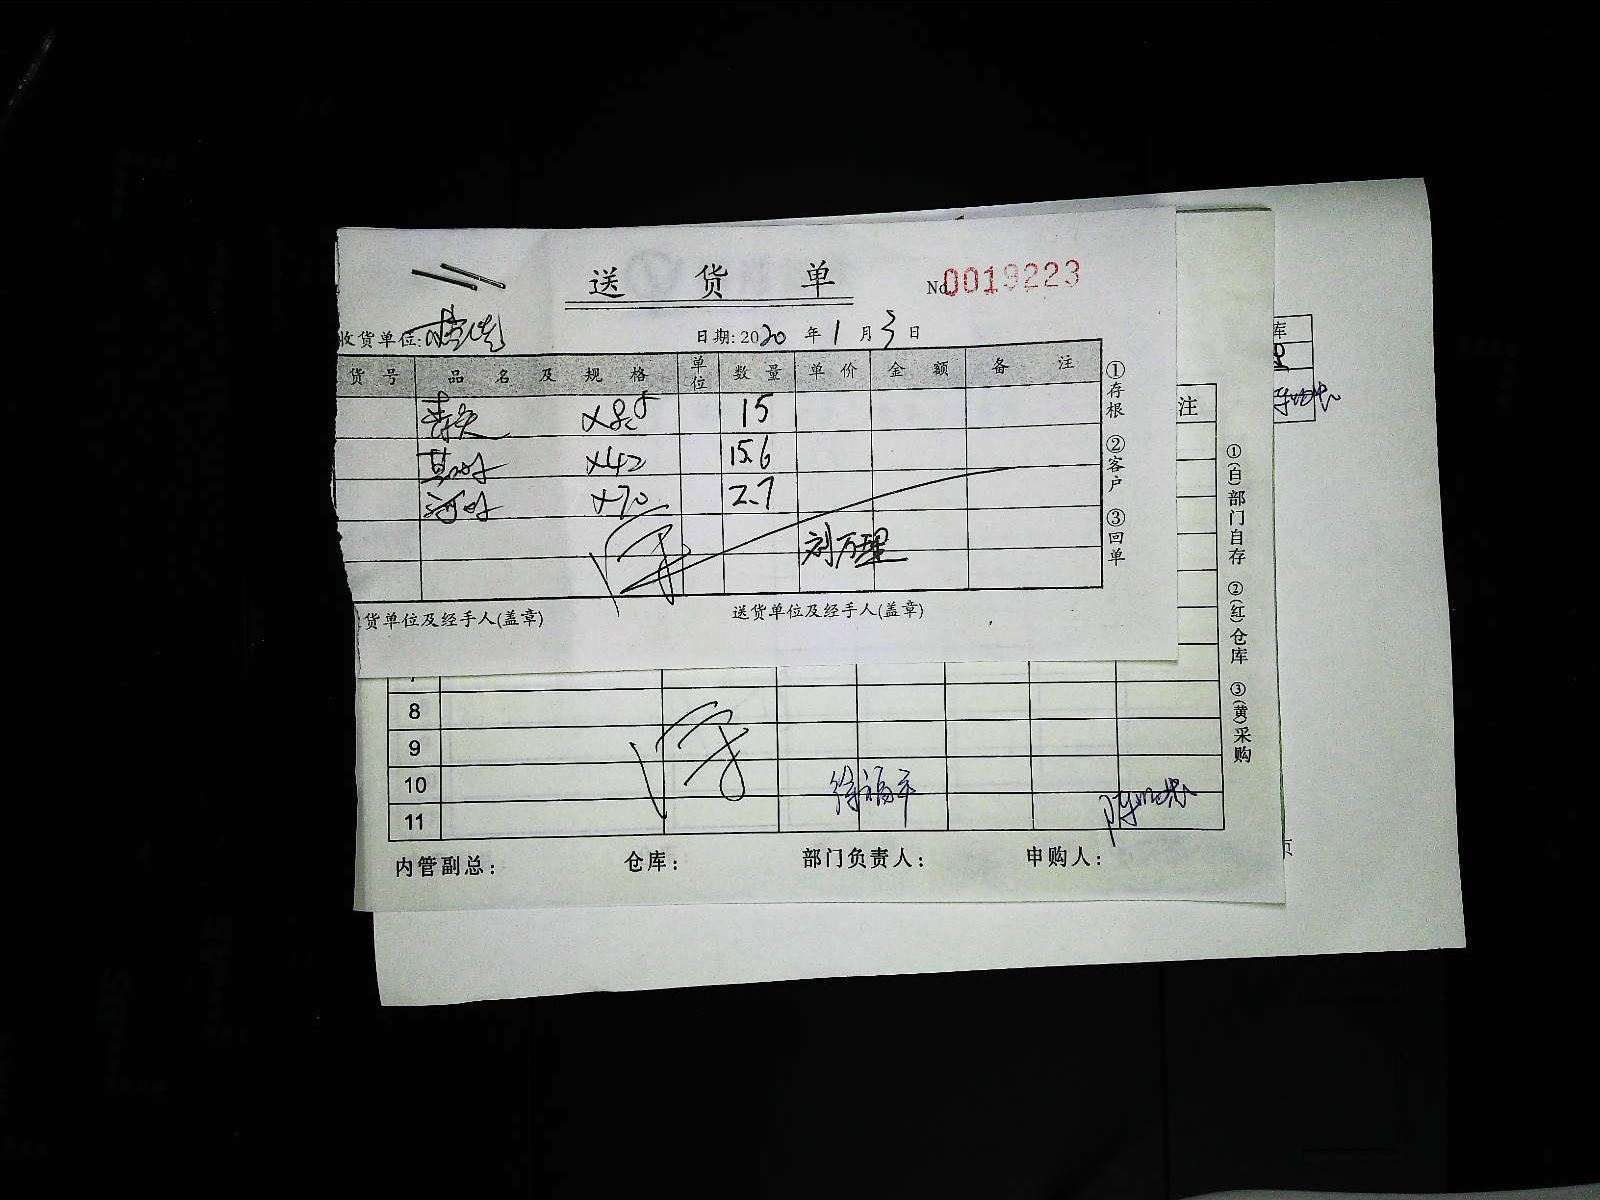 送 货 单
No 0019223
收货单位:
日期: 2020 年 1 月 3 日
货号 品名及规格 单位 数量 单价 金额 备注
×85 15
×42 15.6
×70 2.7
刘万理
货单位及经手人(盖章) 送货单位及经手人(盖章)
①存根 ②客户 ③回单
库
注
①(白)部门自存 ②(红)仓库 ③(黄)采购
7
8
9
10
11
徐福平
内管副总: 仓库: 部门负责人: 申购人:
页